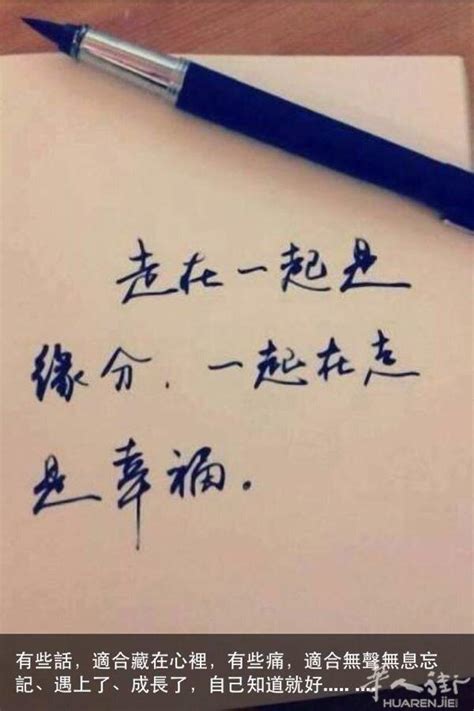 走在一起是
缘分，一起在走
是幸福。
有些話，適合藏在心裡，有些痛，適合無聲無息忘
記、遇上了、成長了，自己知道就好..... ....
华人街
HUARENJIE